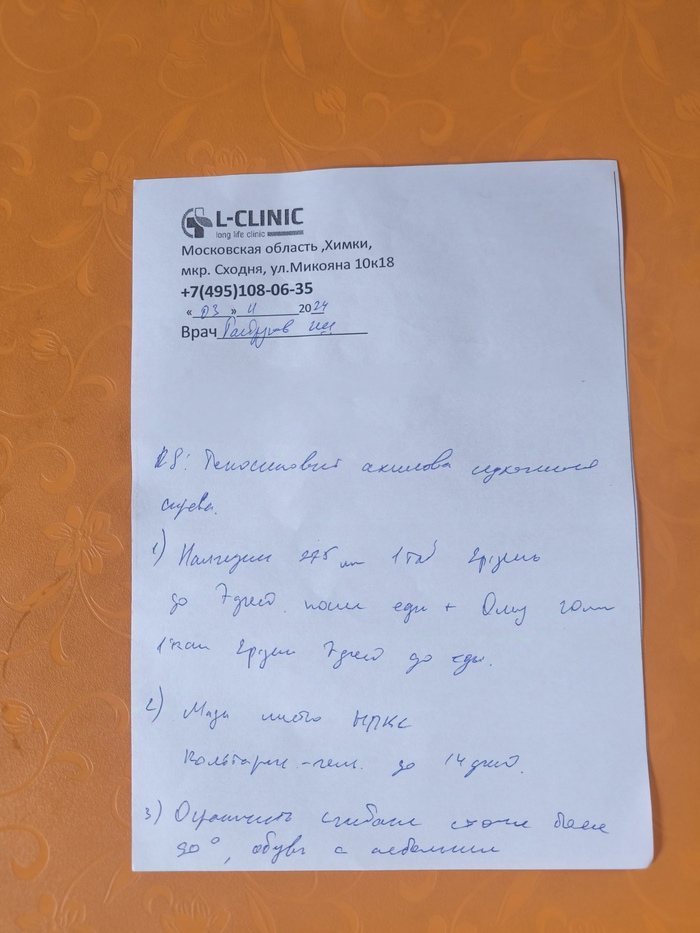 L-CLINIC
long life clinic
Московская область ,Химки,
мкр. Сходня, ул.Микояна 10к18
+7(495)108-06-35
« 03 » 11 2024
Врач
DS: Теносиновит ахилова сухожилия
слева.
1) Налгезин 275 мг 1 таб 2р/день
до 7 дней после еды + Омез 20 мг
1 кап 2р/день 7 дней до еды.
2) Мазь место НПВС
Вольтарен - гель до 14 дней.
3) Ограничить сгибание стопы более
90°, обувь с небольшим